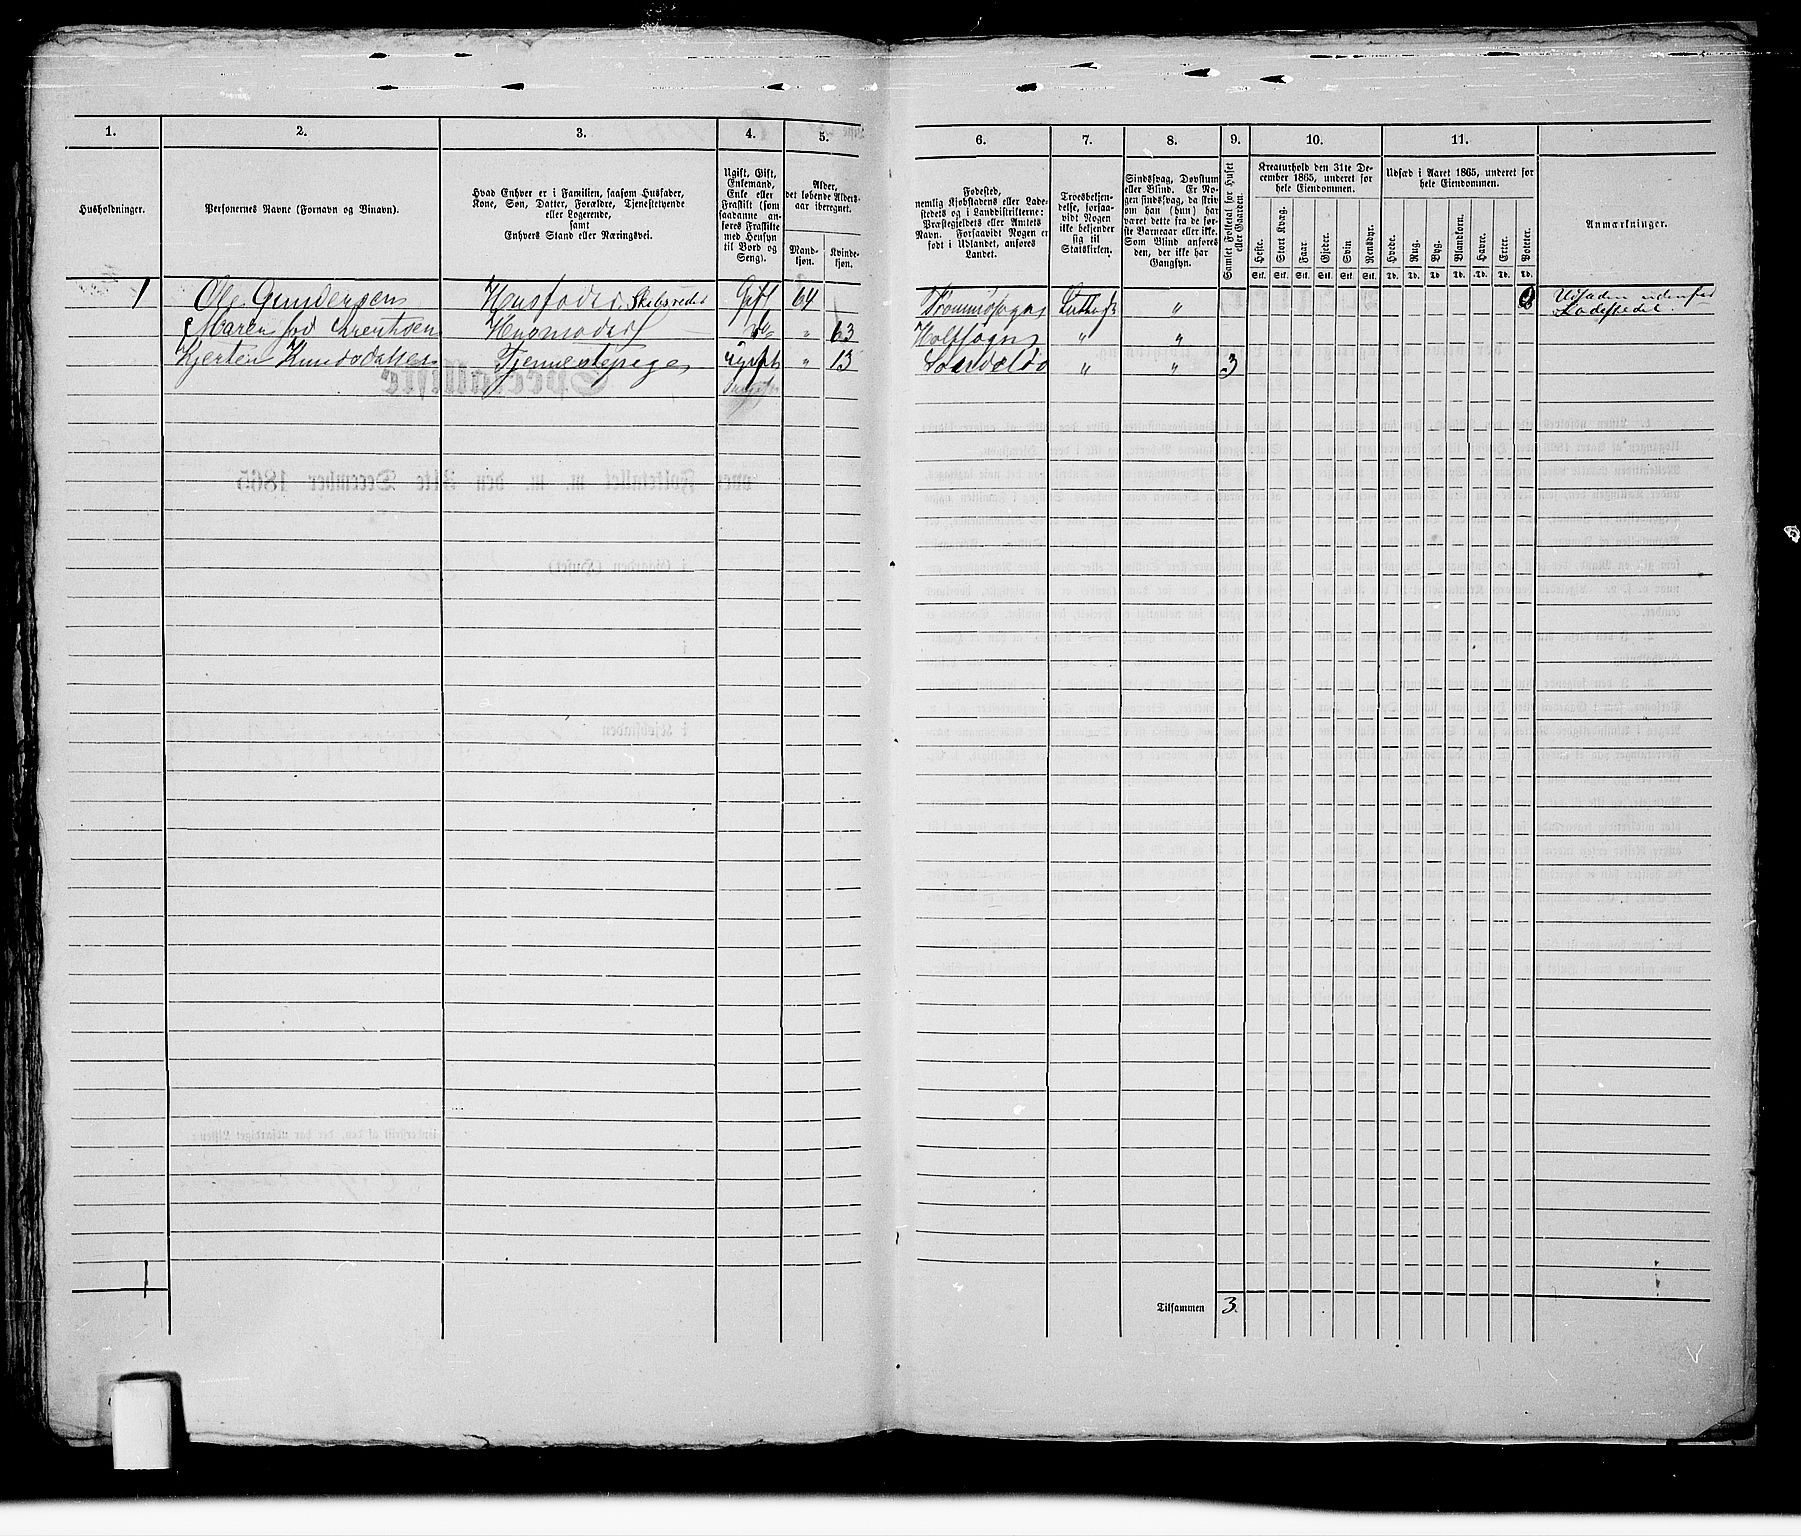 1.
2.
3.
4.
5.
Husholdninger.
Personernes Navne (Fornavn og Binavn).
Hvad Enhver er i Familien, saasom Husfader,
Kone, Søn, Datter, Forældre, Tjenestetyende
eller Logerende,
samt
Enhvers Stand eller Næringsvei.
Ugift, Gift,
Enkemand,
Enke eller
Fraskilt (som
saadanne an-
føres Fraskilte
med Hensyn
til Bord og
Seng).
Alder,
det løbende Alders-
aar iberegnet.
Mand-
kjøn.
Kvinde-
kjøn.
1 Ole Gundersen Huusfader, Skibsreder Gift 64
Maren fød Huusmoder do " 63
Kjersten Knudsdatter Tjenestepige ugift " 13
6.
7.
8.
9.
10.
11.
Fødested,
nemlig Kjøbstadens eller Lade-
stedets og i Landdistrikterne:
Præstegjeldets eller Amtets
Navn. Forsaavidt Nogen er
født i Udlandet, anføres
Landet.
Troesbekjen-
delse, forsaa-
vidt Nogen
ikke bekjender
sig til
Statskirken.
Sindssvag, Døvstum
eller Blind. Er No-
gen sindssvag, da skriv
om han (hun) har
været dette fra de før-
ste Barneaar eller ikke.
Som Blind anføres
den, der ikke har
Gangsyn.
Samlet Folketal for Huset
eller Gaarden.
Kreaturhold den 31te De-
cember 1865, underet for
hele Eiendommen.
Heste.
Stort Kvæg.
Faar.
Gjeder.
Svin
Rensdyr.
Stk. Stk. Stk. Stk. Stk. Stk.
Udsæd i Aaret 1865, underet for
hele Eiendommen.
Hvede.
Rug.
Byg.
Blandkorn.
Havre.
Erter.
Poteter.
Td. Td. Td. Td. Td. Td. Td.
Anmærkninger.
Tromøsogn Luthersk " Udsæden udenfor
Ladestedet.
Holtsogn " "
" " 3
Tilsammen 3.